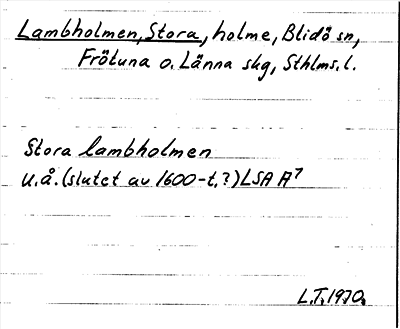 Lambholmen, Stora, holme, Blidö sn,
Frötuna o. Länna skg, Sthlms. l.
Stora lambholmen
u.å. (slutet av 1600-t.?) LSA A7
L.T. 1970.